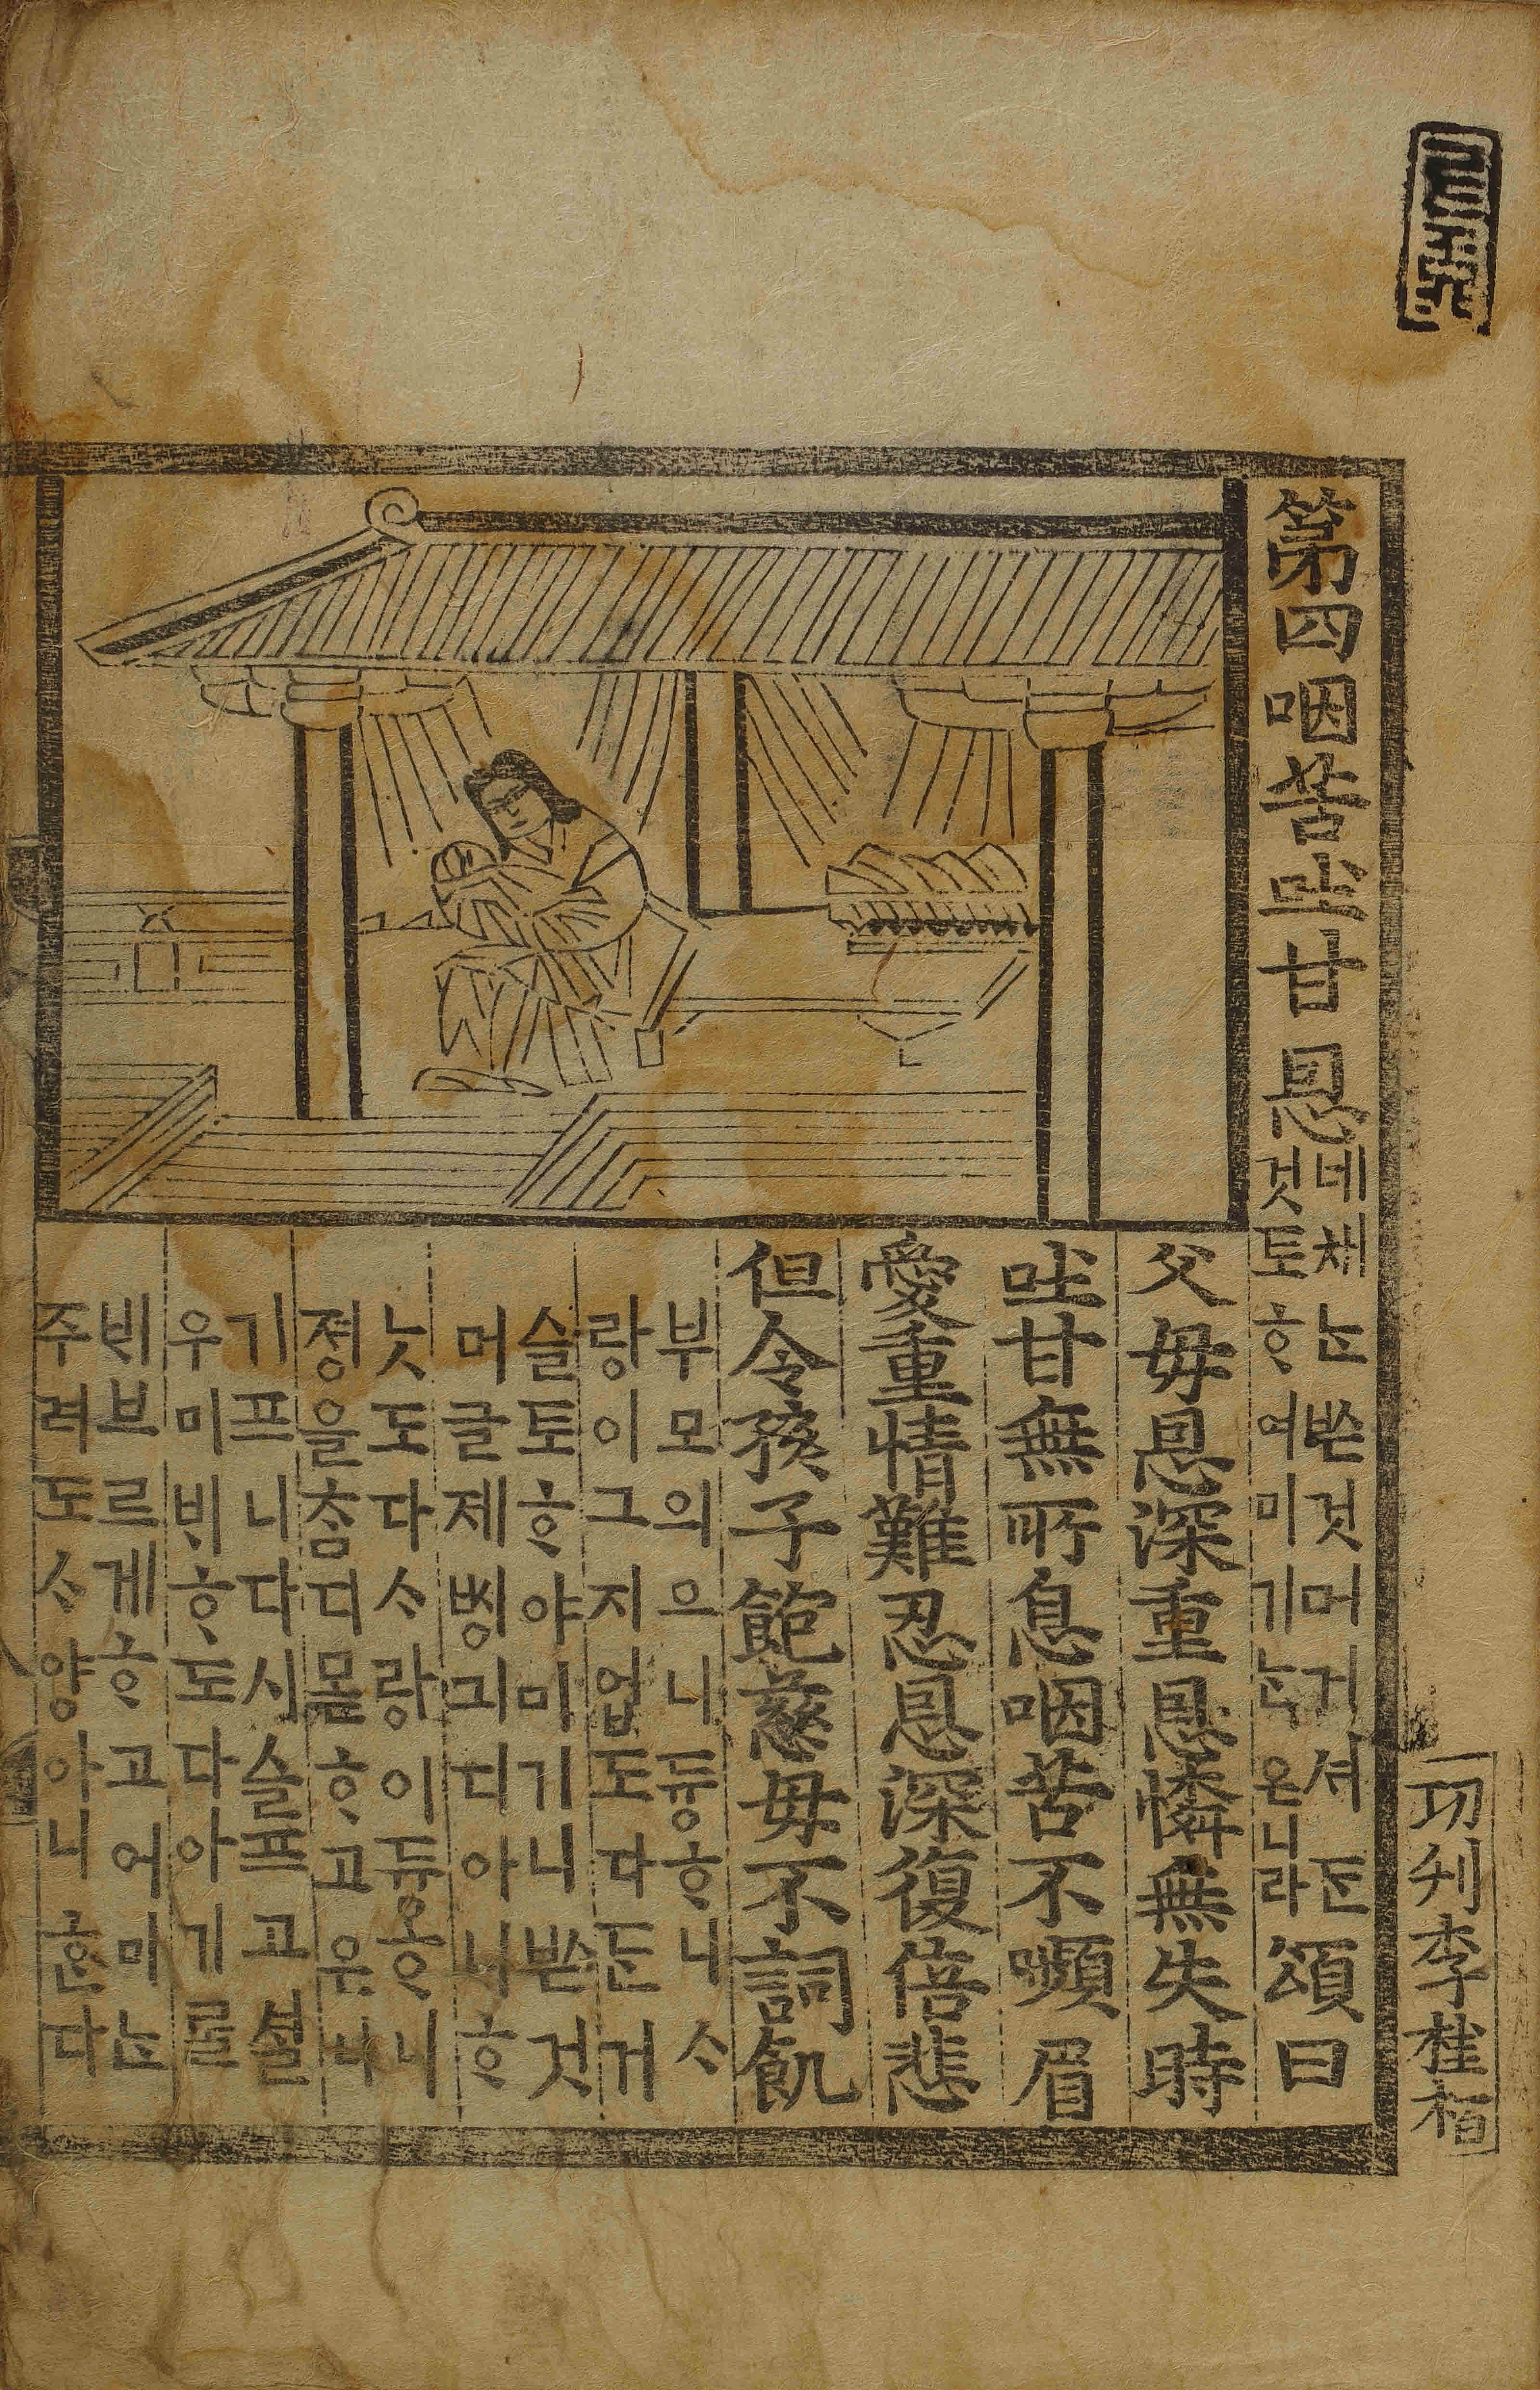 功刋李桂栢
第四咽苦吐甘恩
네채ᄂᆞᆫᄡᅳᆫ것머거셔ᄃᆞᆫ
것토ᄒᆞ여미기ᄂᆞᆫ온니라
頌曰
父母恩深重恩憐無失時
吐甘無所息咽苦不嚬眉
愛重情難忍恩深復倍悲
但令孩子飽慈母不詞飢
부모의으니듕ᄒᆞ니ᄉᆞ
랑이그지업도다ᄃᆞᆫ거
슬토ᄒᆞ야미기니ᄡᅳᆫ것
머글제ᄧᅵᆼ긔디아니ᄒᆞ
ᄂᆞᆺ도다ᄉᆞ랑이듕ᄒᆞᆼ니
졍을ᄎᆞᆷ디몯ᄒᆞ고은니
기프니다시슬프고셜
우미ᄇᆡᄒᆞ도다아기ᄅᆞᆯ
ᄇᆡ브르게ᄒᆞ고어미ᄂᆞᆫ
주려도ᄉᆞ양아니ᄒᆞᆫ다